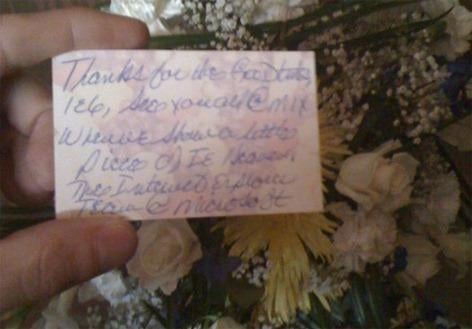 Thanks for the Good times
IE6, see you all @ MIX
when we show a little
Piece of IE Heaven
The Internet Explorer
Team @ Microsoft